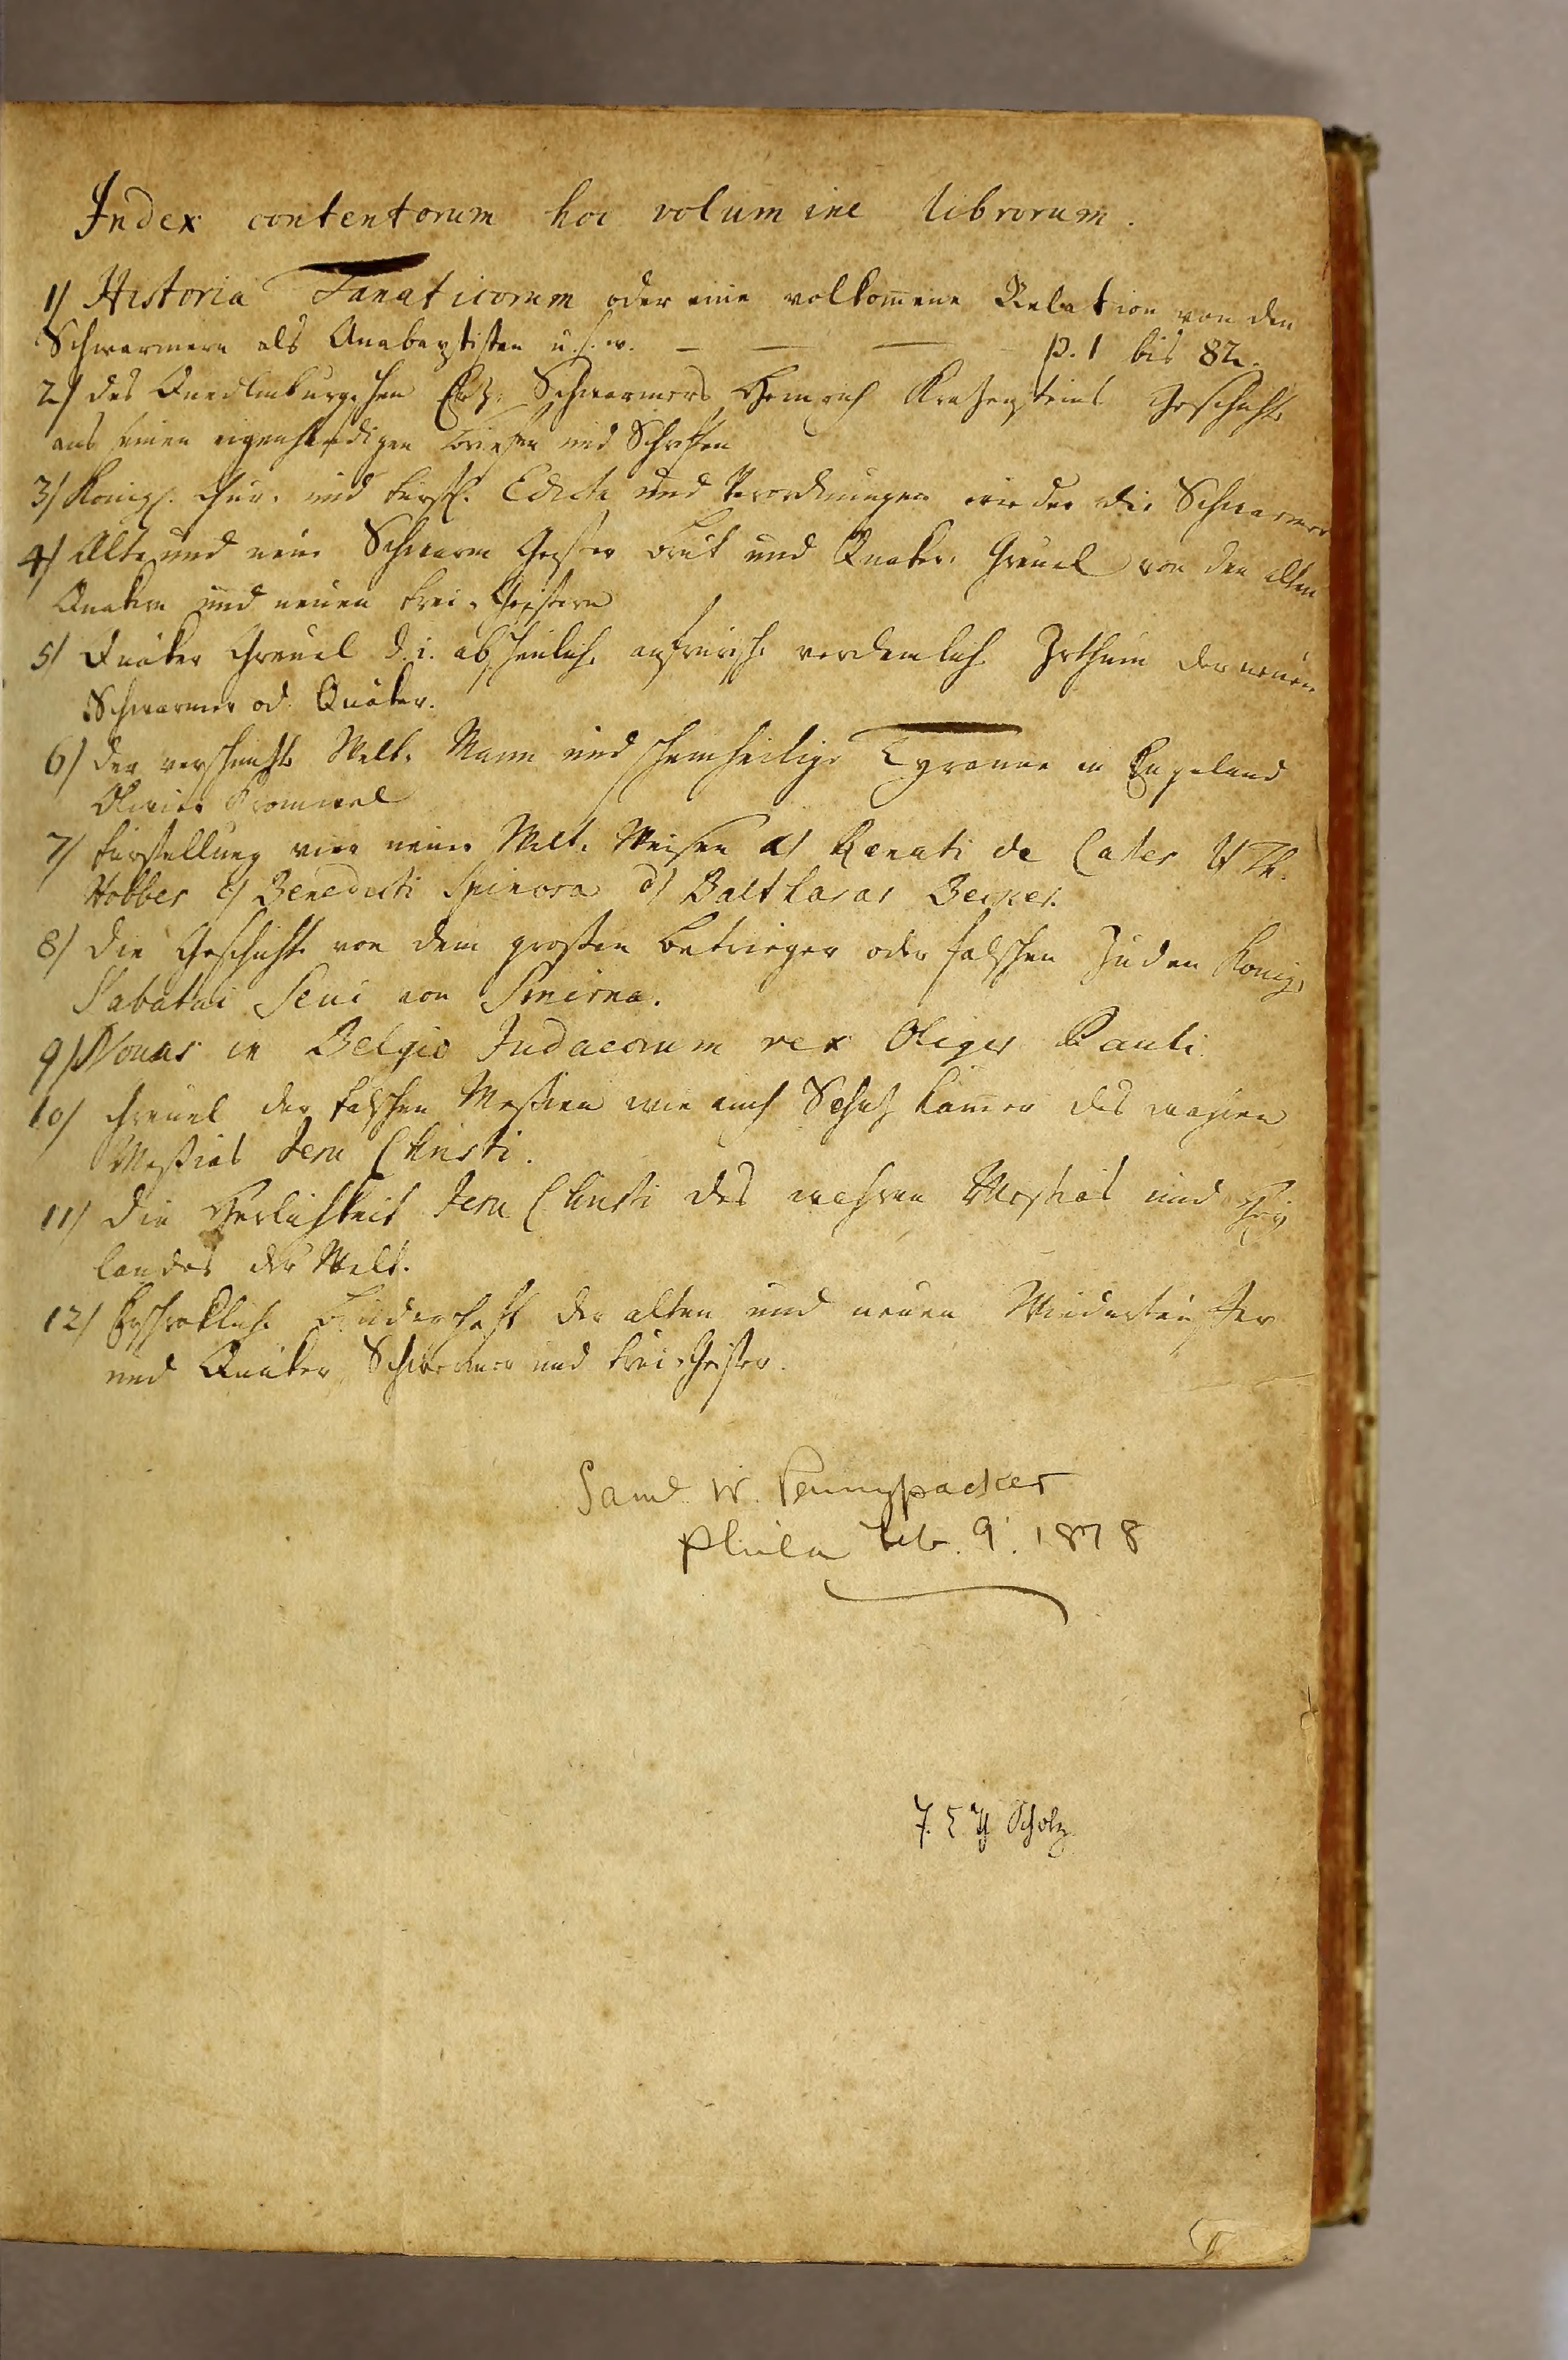 Index contentorum hoc volumine librorum.
1) Historia Fanaticorum oder eine volkom̄ene Relation von den
Schwarmern als Anabaptisten u.s.w. — — — p. 1 bis 82.
2) des Quedlinburgschen Ertz-Schwarmers Heinrich Kratzensteins Geschichte
aus seinen eigenhändigen Briefen und Schriften
3) Königl. Chur- und Fürstl. Edicta und Verordnungen wieder die Schwarmer
4) Alte und neue Schwarm Geister Brut und Quaker-Greuel von den alten
Quakern und neuen Frei-Geistern
5) Quäker Greuel d. i. abscheuliche aufrürische verdamliche Irthum der neuen
Schwarmer od. Quäker.
6) der verschmitzte Welt-Mann und scheinheilige Tyranne in Engeland
Olivier Cromwel
7) Fürstellung vier neuer Welt-Weisen a) Renati de Cartes b) Th.
Hobbes c) Benedicti Spinosa d) Balthasar Becker.
8) die Geschichte von dem großen Betrieger oder falschen Juden König,
Sabatai Sevi von Smirna.
9) Novus in Belgio Judaeorum rex Oliger Pauli.
10) Greuel der falschen Meßien wie auch Schatz Kam̄er des wahren
Meßias Jesu Christi.
11) die Herlichkeit Jesu Christi des wahren Meßias und Hei
landes der Welt.
12) Erschrekliche Bruderschaft der alten und neuen Wiedertäufer
und Quäker Schwermer und Frei-Geister.
Saml. W. Pennypacker
Phila Feb. 9. 1878
Scholz